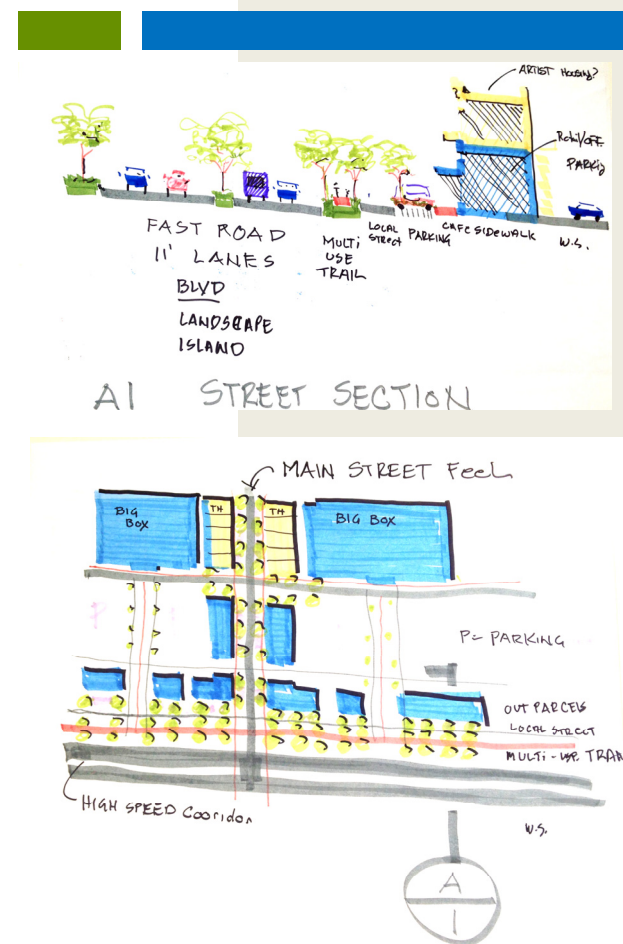 ARTIST Housing?
Retail/OFF.
PARKing
FAST ROAD
11' LANES
BLVD
LANDSCAPE
ISLAND
MULTi
USE
TRAIL
LOCAL
Street
PARKING
CAFE SIDEWALK
W.S.
A1 STREET SECTION
MAIN STREET FeeL
BIG
BOX
TH
TH
BIG BOX
P= PARKING
OUT PARCELS
LOCAL STREET
MULTi-USE TRAI
HIGH SPEED Cooridor
W.S.
A
1